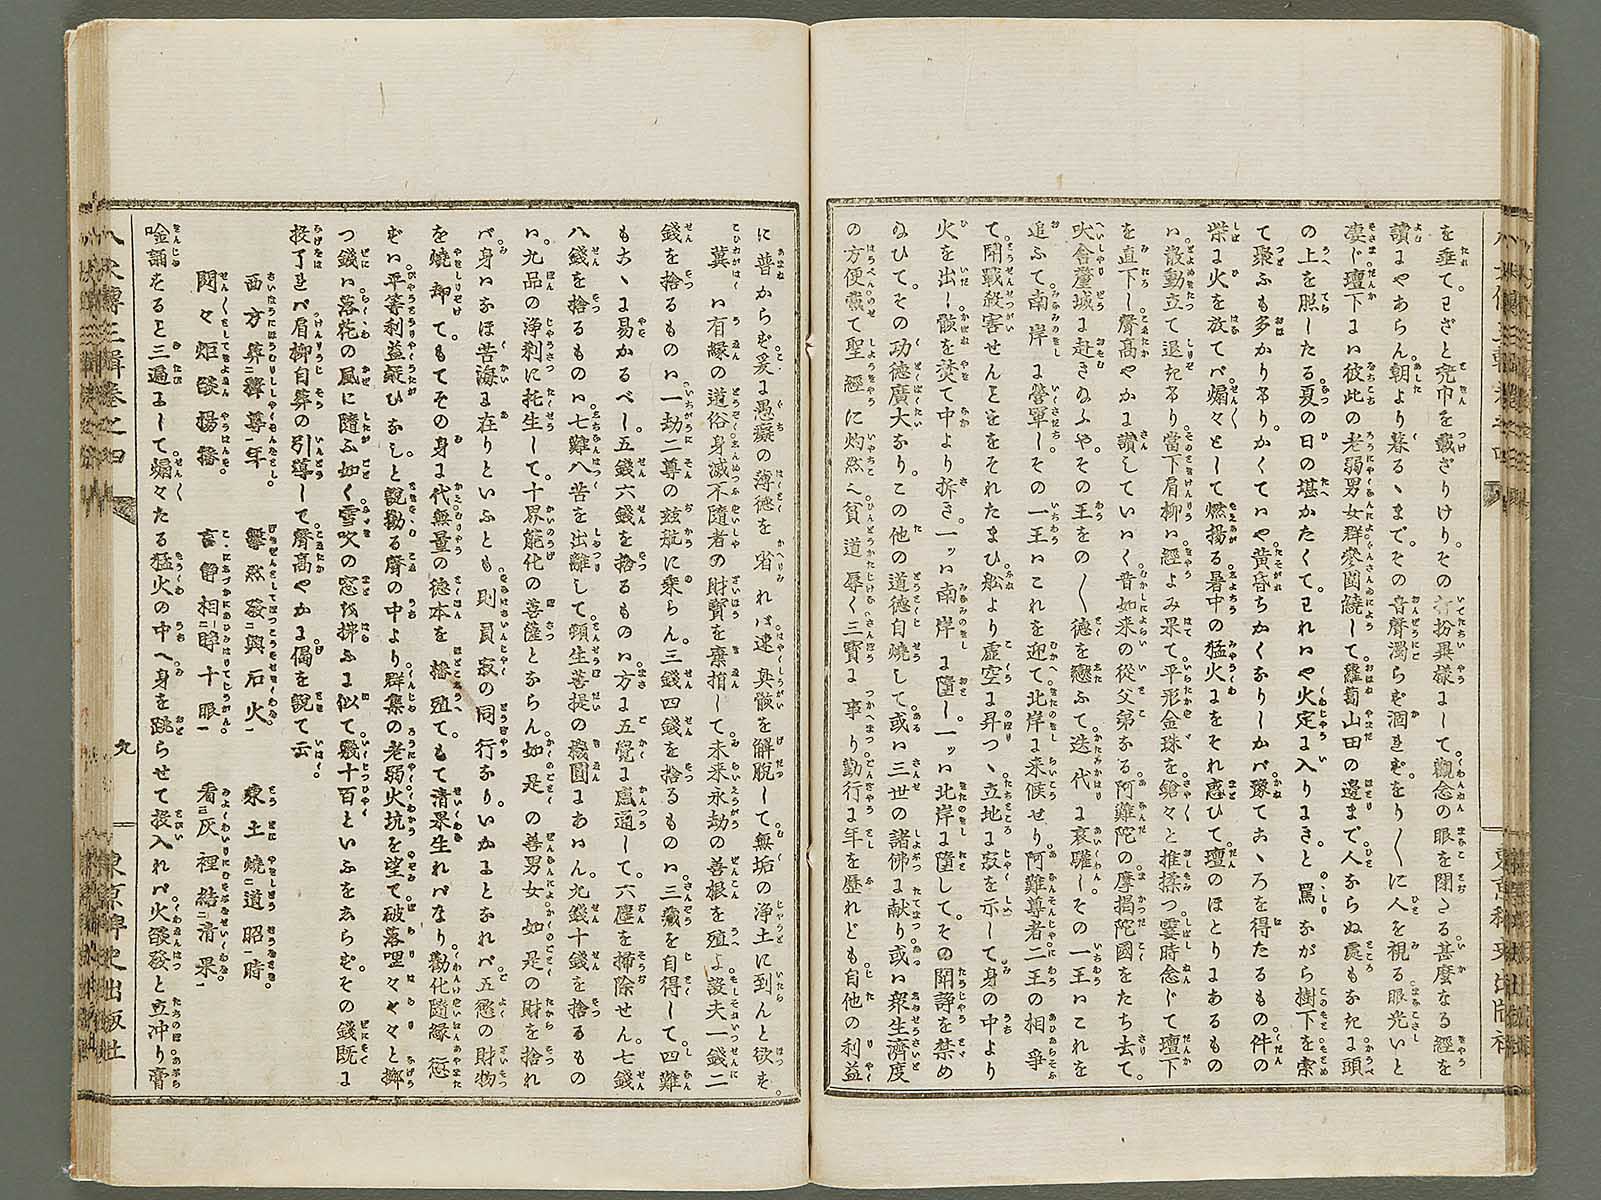 を垂て。わざと兜巾を戴ざりけり。その打扮異樣にして。觀念の眼を閉たる甚麼なる經を
讀にやあらん。朝より暮るゝまで。その音聲濁らず涸れず。をり〳〵に人を視る眼光いと
凄じ。壇下には彼此の老弱男女群參圍繞して。蘿蔔山田の邊まで。人ならぬ處もなきに頭
の上を照したる。夏の日の堪かたくて。われはや火定に入りにきと罵ながら。樹下を索
て聚ふも多かりけり。かくてはや黄昏ちかくなりしかバ。豫てこゝろを得たるもの。件の
柴に火を放てバ。煽々として燃揚る。暑中の猛火にをそれ惑ひて。壇のほとりにあるもの
は。散動立て退きけり。當下肩柳は經よみ果て。平形金珠を鎗々と推揉つ。霎時念じて壇下
を直下し。聲高やかに讃していはく。昔如来の從父弟なる阿難陀の。摩揭陀國をたち去て。
吠舍釐城に赴き給ふや。その王をの〳〵德を戀ふて。迭代に哀驩し。その一王ハこれを
追ふて南岸に營軍し。その一王はこれを迎て北岸に来候せり。阿難尊者二王の相爭
て。鬪戰殺害せんことををそれたまひ。舩より虚空に昇つゝ。立地に寂を示して身の中より
火を出し。骸を焚て中より拆き。一ッハ南岸に墮し。一ッハ北岸に墮して。その鬪諍を禁め
給ひて。その功德廣大なり。この他の道德自燒して。或ハ三世の諸佛に献り。或ハ衆生濟度
の方便。戴て聖經に灼然也。貧道辱く三寳に事り。勤行に年を歷れども。自他の利益
に普からず。爰に愚癡の薄德を省れバ。速臭骸を解脱して。無垢の浄土に到んと欲を。
冀くハ有縁の道俗。身滅不隨者の財寳を棄捐して。未来永劫の善根を殖よ。設夫一錢二
錢を捨るものハ。一劫二尊の玆航に乘らん。三錢四錢を捨るものハ。三藏を自得して。四難
もたちまち易かるべし。五錢六錢を捨るものハ。方に五覺に感通して。六塵を掃除せん。七錢
八錢を捨るものハ。七難八苦を出離して。頓生菩提の機圓にあはん。九錢十錢を捨るもの
ハ。九品の浄刹に托生して。十界能化の菩薩とならん。如是の善男女。如是の財を捨れ
バ。身ハなほ苦海に在りといふとも。則員寂の同行なり。いかにとなれバ。五慾の財物
を燒却て。もてその身に代。無量の德本を播殖て。もて清果生れバなり。勸化隨緣愆
ずハ。平等利益疑ひなしと。說勸る聲の中より。群集の老弱火坑を望て。破落哩々々々と擲
つ錢ハ。落花の風に隨ふ如く。雪吹の窓を拂ふに似て。幾十百といふをしらず。その錢既に
投了れバ。肩柳自葬の引導して。聲高やかに偈を說て云。
西方葬ニ釋尊一年　瞥然發興石火一　東土燒ニ道昭一時
閃々炬燄揚播　言曾相ニ時十眼一　看三灰裡結ニ清果一
唫誦をること三遍にして。煽々たる猛火の中へ。身を跳らせて投入れバ。火燄發と立冲り。膏
八犬傳三輯卷之四
九
東京稗史出版社